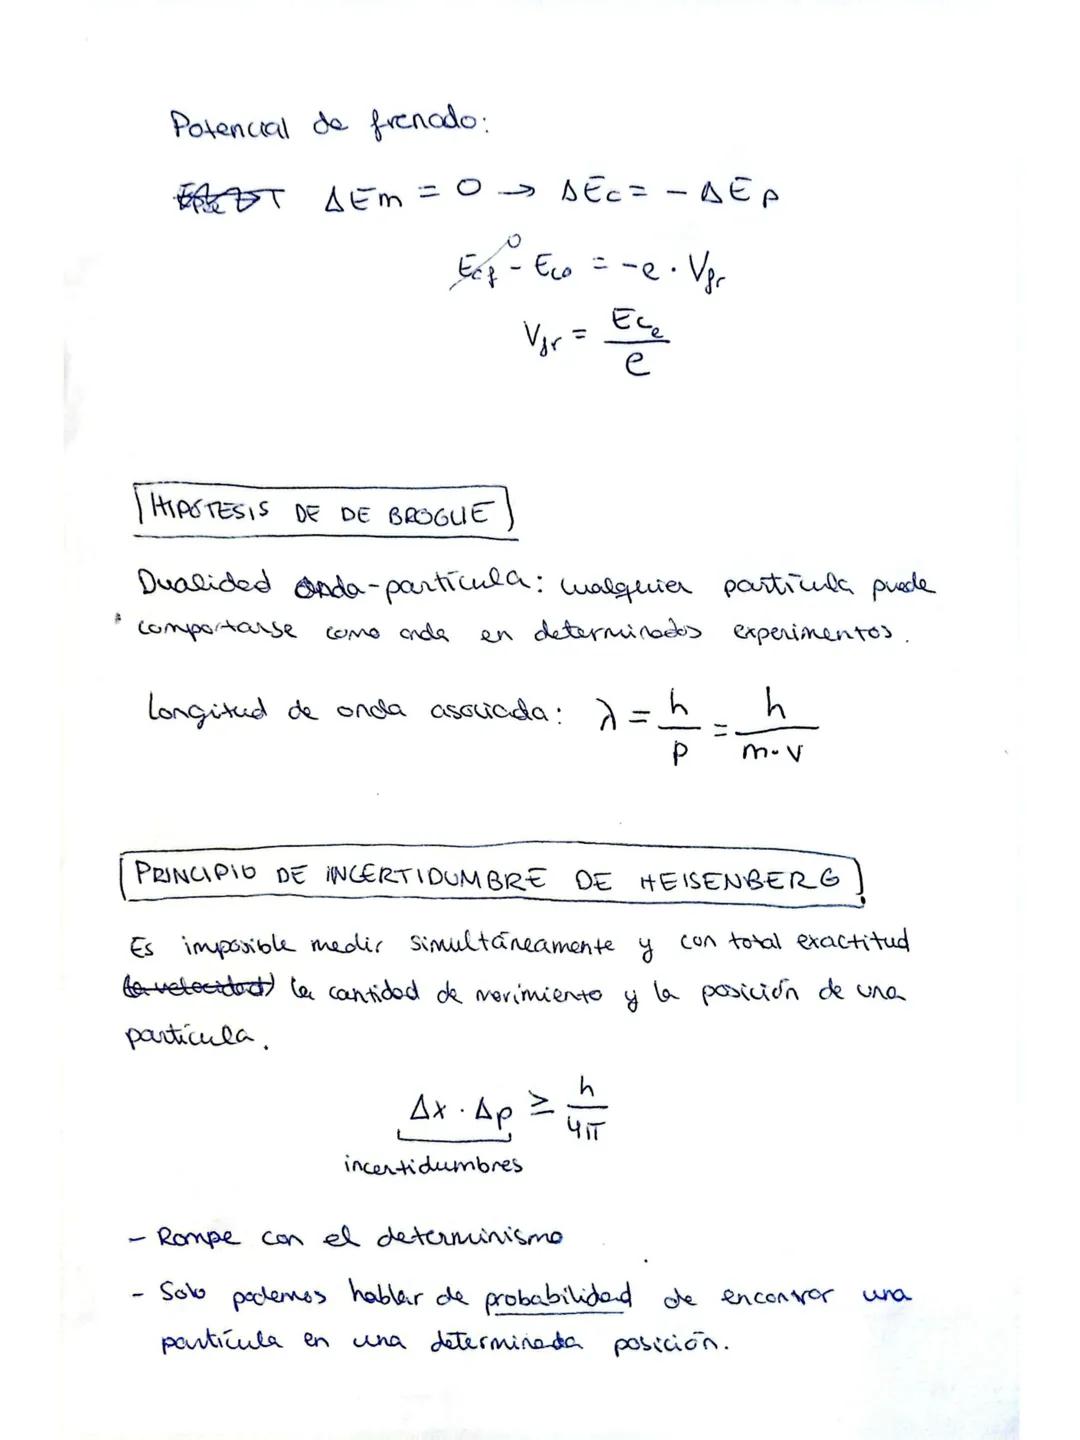 Potencial de frenado:
ΔEm = 0 → ΔEc = - ΔEp
Ecf 0 - Eco = -e · Vfr
Vfr = Ece / e
HIPÓTESIS DE DE BROGLIE
Dualidad onda-partícula: cualquier partícula puede
comportarse como onda en determinados experimentos.
Longitud de onda asociada: λ = h / p = h / m·v
PRINCIPIO DE INCERTIDUMBRE DE HEISENBERG
Es imposible medir simultáneamente y con total exactitud
(la velocidad) la cantidad de movimiento y la posición de una
partícula.
Δx · Δp ≥ h / 4π
incertidumbres
- Rompe con el determinismo
- Solo podemos hablar de probabilidad de encontrar una
partícula en una determinada posición.